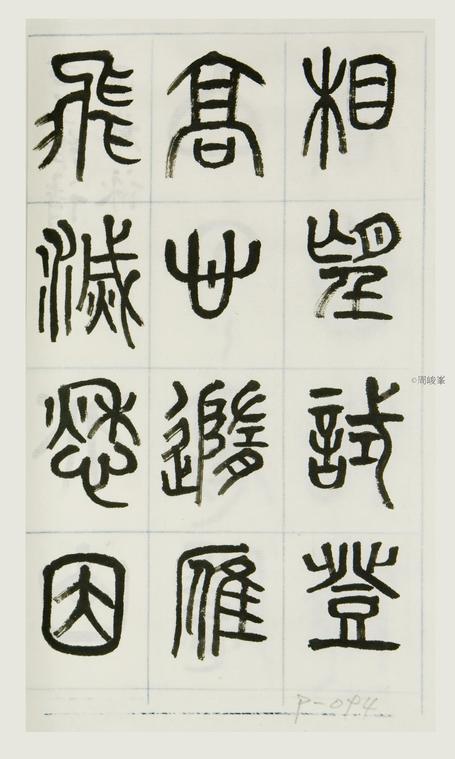 相望試登
高心隨雁
飛滅愁因
©周峻峯
P-094